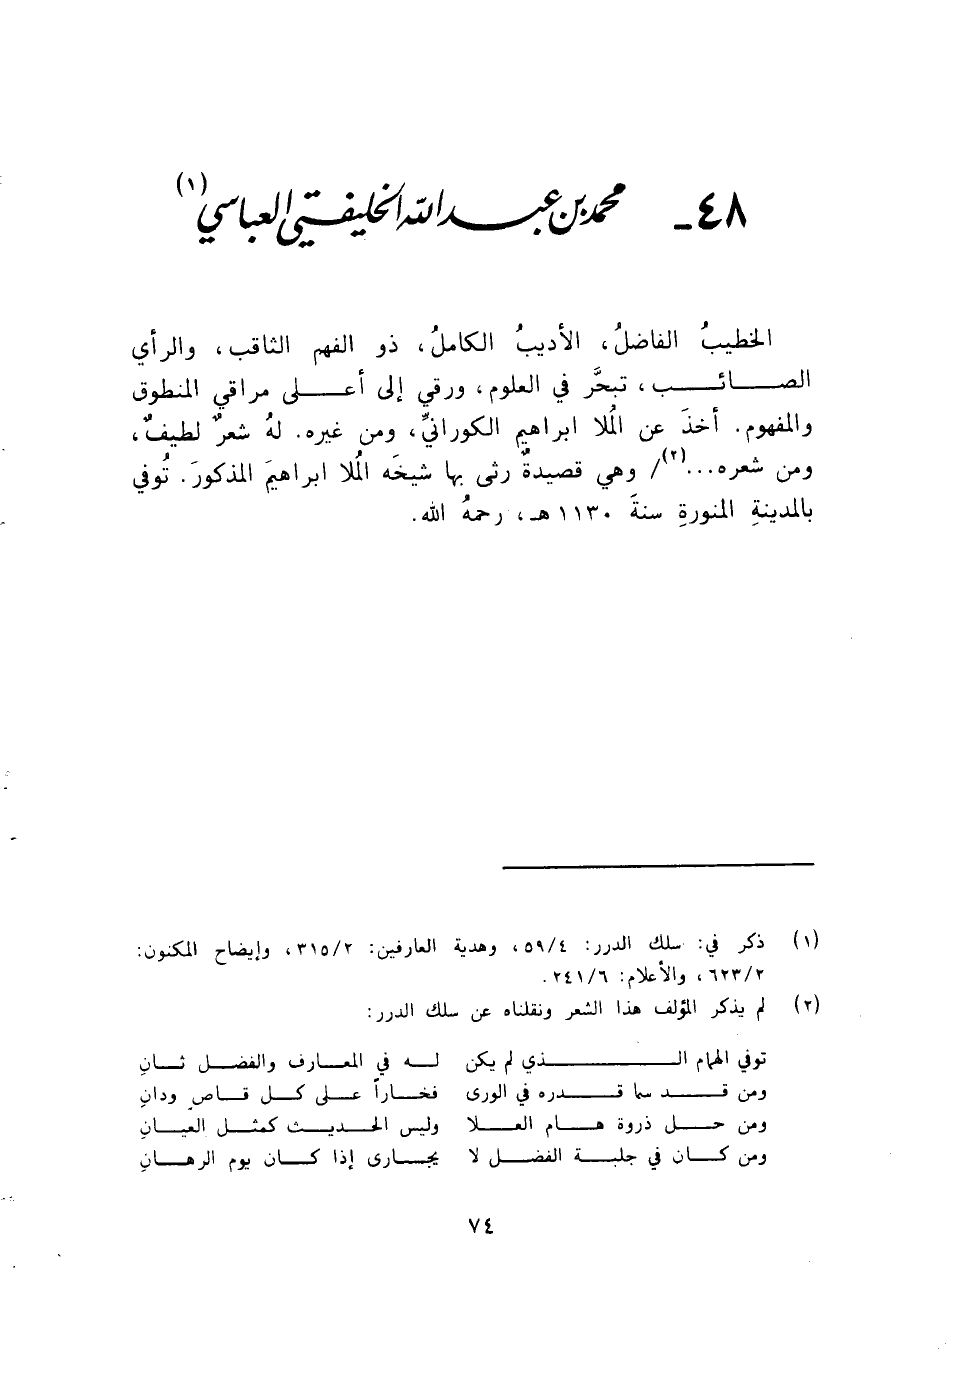 ٤٨ - محمد بن عبد الله الخليفتي العباسي (١)
الخطيبُ الفاضلُ، الأديبُ الكاملُ، ذو الفهم الثاقب، والرأي
الصائب، تبحَّر في العلوم، ورقي إلى أعلى مراقي المنطوق
والمفهوم. أخذَ عن المُلا ابراهيم الكورانيِّ، ومن غيره. لهُ شعرٌ لطيفٌ،
ومن شعره...(٢)/ وهي قصيدةٌ رثى بها شيخَه المُلا ابراهيمَ المذكورَ. تُوفي
بالمدينةِ المنورةِ سنةَ ١١٣٠ هـ، رحمهُ الله.
(١) ذكر في: سلك الدرر: ٥٩/٤، وهدية العارفين: ٣١٥/٢، وإيضاح المكنون:
٦٢٣/٢، والأعلام: ٢٤١/٦.
(٢) لم يذكر المؤلف هذا الشعر ونقلناه عن سلك الدرر:
توفي الهمام الذي لم يكن له في المعارف والفضل ثانِ
ومن قد سما قدره في الورى فخاراً على كل قاصٍ ودانِ
ومن حل ذروة هام العلا وليس الحديث كمثل العيانِ
ومن كان في جلبة الفضل لا يجارى إذا كان يوم الرهانِ
٧٤